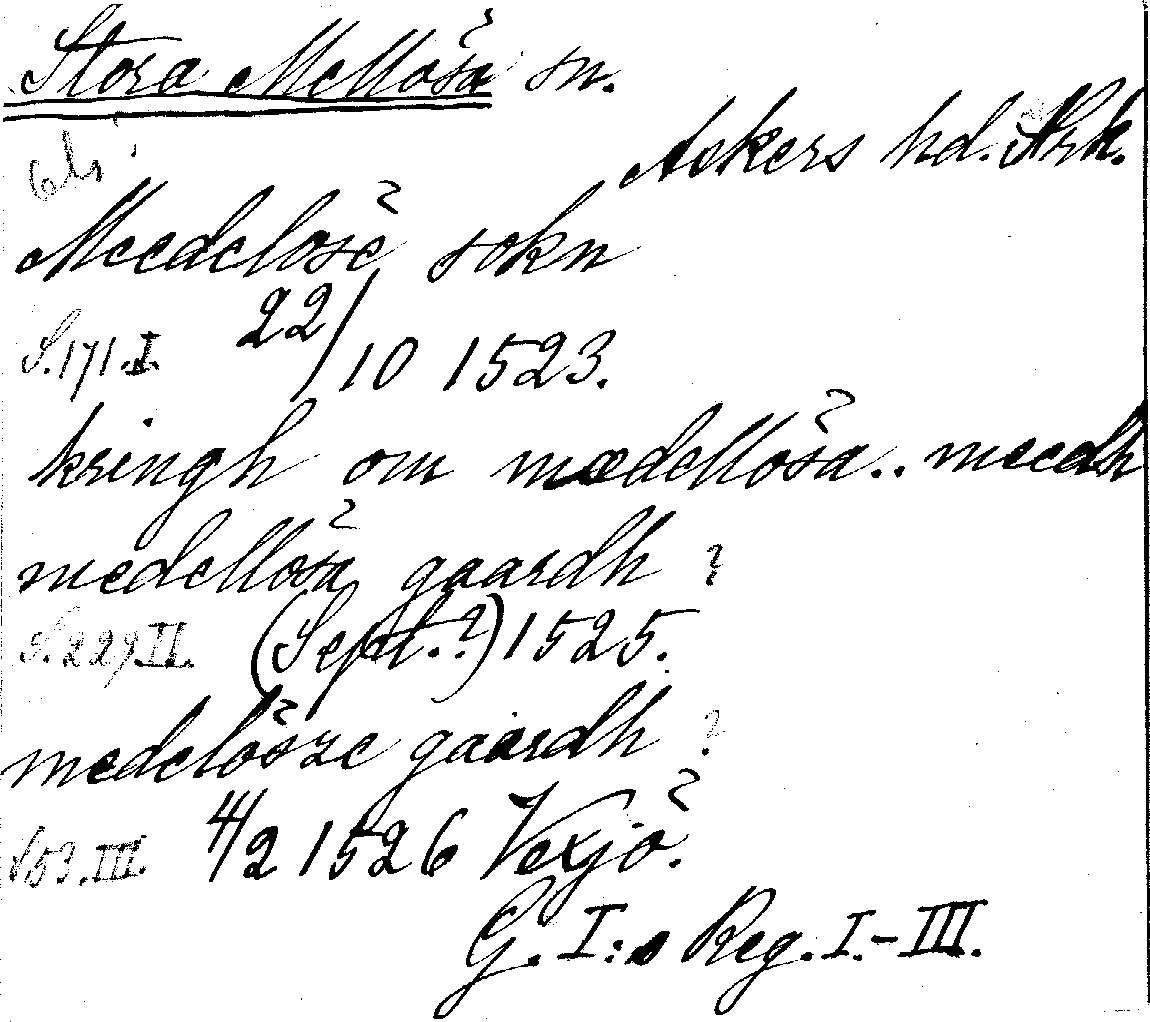 Stora Mellösa sn.
Askers hd. Nrk.
Meedelosě sokn
S. 171. I. 22/10 1523.
kringh om mædellösa.. meedh
medellösa gaardh ?
S. 229 II. (Sept.?) 1525.
medelösze gaardh ?
S 53. III. 4/2 1526 Vexjö.
G. I:s Reg. I.-III.